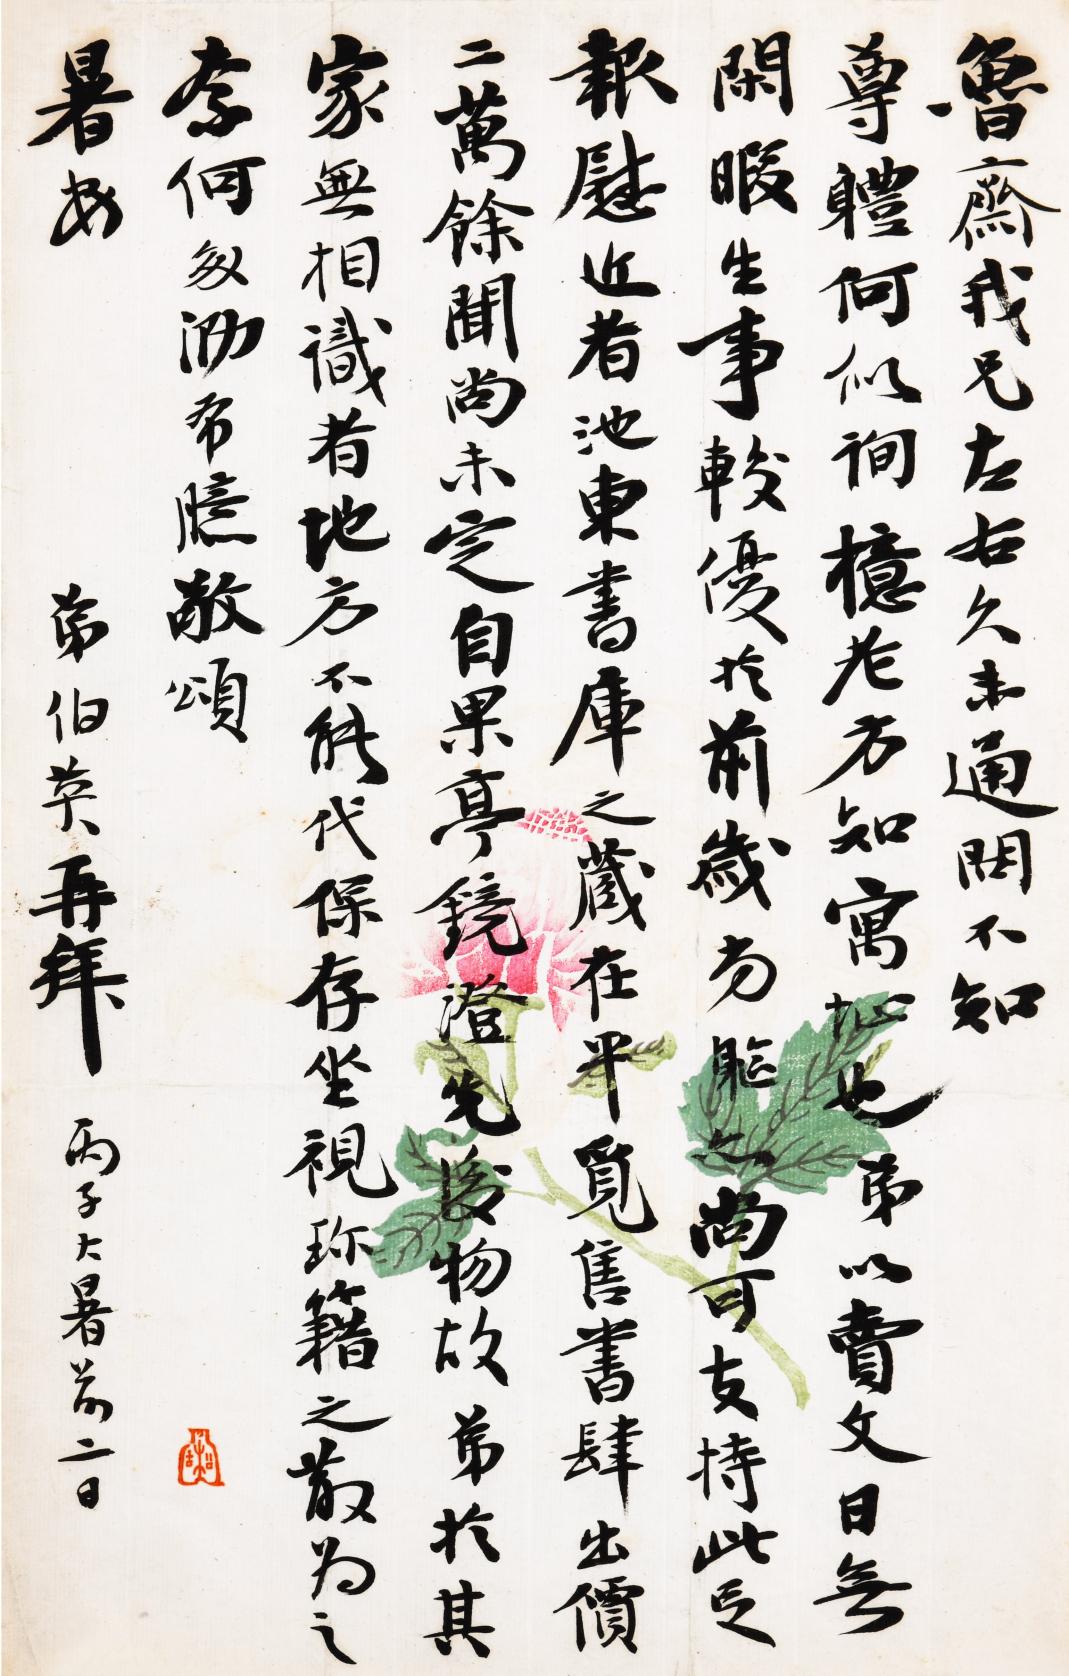 魯齋我兄左右久未通問不知
尊體何似詢檍老方知寓址也弟以賣文日無
閑暇生事較優於前歲勿能之尚可支持此足
報慰近者池東書庫之藏在平覓售書肆出價
二萬餘聞尚未定自果亭鏡澄先後物故弟於其
家無相識者地方不能代保存坐視珍籍之散為之
奈何匆泐希臆敬頌
暑安
弟伯英再拜 丙子大暑前二日